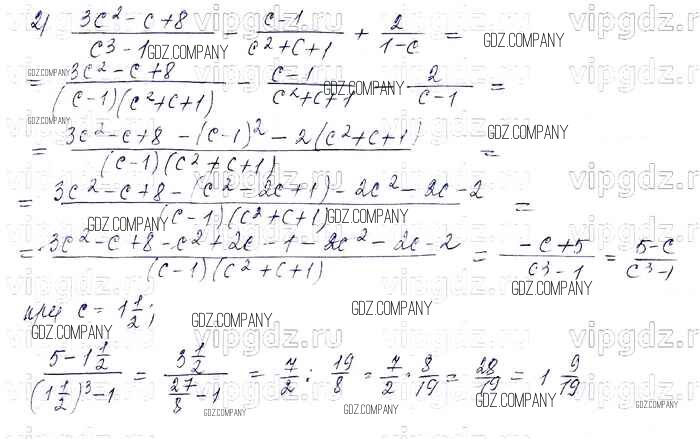 2) (3c² - c + 8)/(c³ - 1) - (c - 1)/(c² + c + 1) + 2/(1 - c) =
= (3c² - c + 8)/((c - 1)(c² + c + 1)) - (c - 1)/(c² + c + 1) - 2/(c - 1) =
= (3c² - c + 8 - (c - 1)² - 2(c² + c + 1))/((c - 1)(c² + c + 1)) =
= (3c² - c + 8 - (c² - 2c + 1) - 2c² - 2c - 2)/((c - 1)(c² + c + 1)) =
= (3c² - c + 8 - c² + 2c - 1 - 2c² - 2c - 2)/((c - 1)(c² + c + 1)) = (-c + 5)/(c³ - 1) = (5 - c)/(c³ - 1)
при c = 1 1/2;
(5 - 1 1/2)/((1 1/2)³ - 1) = (3 1/2)/(27/8 - 1) = 7/2 : 19/8 = 7/2 · 8/19 = 28/19 = 1 9/19
vipgdz.ru
GDZ.COMPANY